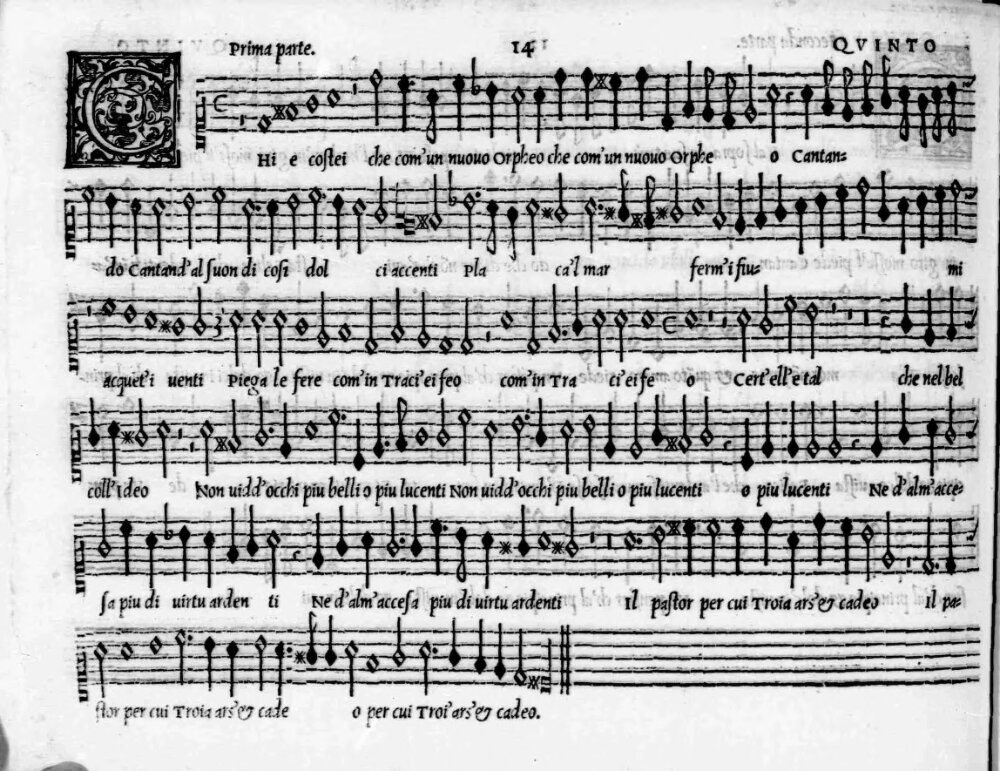 Prima parte. 14 QVINTO
CHi e costei che com'un nuouo Orpheo che com'un nuouo Orphe o Cantan-
do Cantand'al suon di cosi dol ci accenti Pla ca'l mar ferm'i fiu- mi
acquet'i uenti Piega le fere com'in Traci'ei feo com'in Tra ci'ei fe o Cert'ell'e tal che nel bel
coll'ideo Non uidd'occhi piu belli o piu lucenti Non uidd'occhi piu belli o piu lucenti o piu lucenti Ne d'alm'acce-
sa piu di uirtu arden ti Ne d'alm'accesa piu di uirtu ardenti Il pastor per cui Troia ars'& cadeo il pa-
stor per cui Troia ars'& cade o per cui Troi'ars'& cadeo.